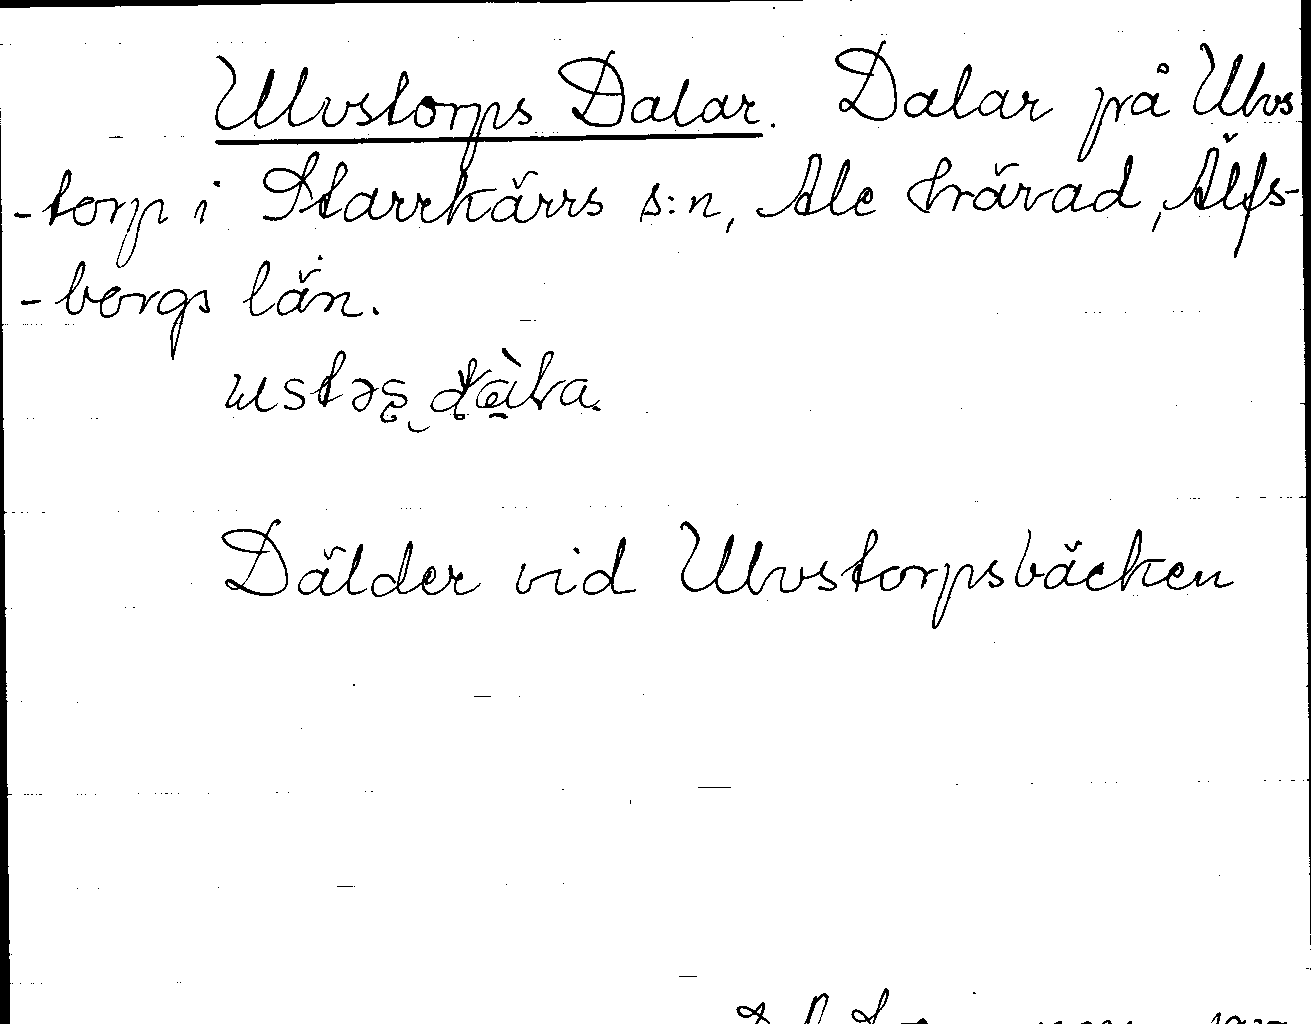 Ulvstorps Dalar. Dalar på Ulvs
-torp i Starrkärrs s:n, Ale härad, Älfs-
-borgs län.
Dälder vid Ulvstorpsbäcken